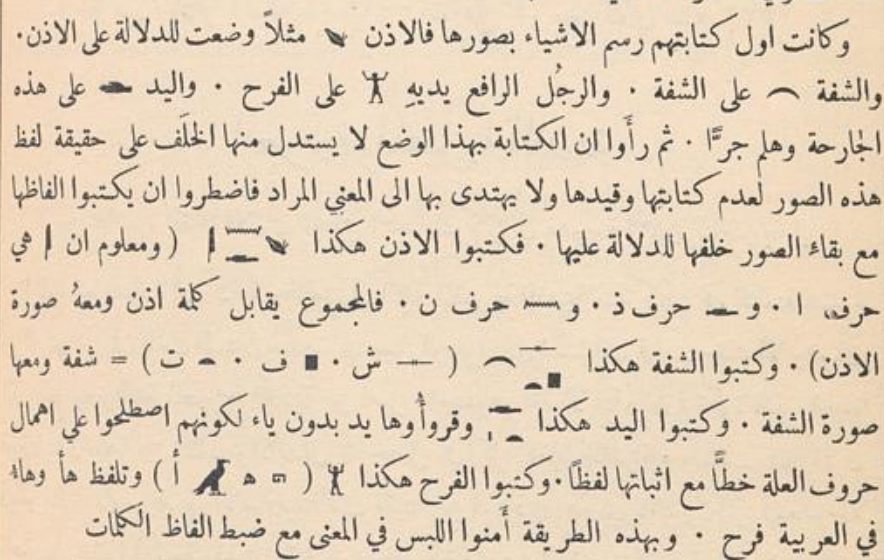 وكانت اول كتابتهم رسم الاشياء بصورها فالاذن 𓄔 مثلاً وضعت للدلالة على الاذن.
والشفة ⌒ على الشفة . والرجُل الرافع يديهِ 𓀠 على الفرح . واليد 𓂧 على هذه
الجارحة وهلم جرًّا . ثم رأَوا ان الكتابة بهذا الوضع لا يستدل منها الخلَف على حقيقة لفظ
هذه الصور لعدم كتابتها وقيدها ولا يهتدى بها الى المعنى المراد فاضطروا ان يكتبوا الفاظها
مع بقاءُ الصور خلفها للدلالة عليها . فكتبوا الاذن هكذا (ومعلوم ان 𓇋 هي
حرف ا . و 𓂧 حرف ذ . و 𓈖 حرف ن . فالمجموع يقابل كلمة اذن ومعهُ صورة
الاذن) . وكتبوا الشفة هكذا ( 𓊃 ش . 𓊪 ف . 𓏏 ت ) = شفة ومعها
صورة الشفة . وكتبوا اليد هكذا وقروأُوها يد بدون ياء لكونهم اصطلحوا علي اهمال
حروف العلة خطًّا مع اثباتها لفظًا . وكتبوا الفرح هكذا 𓀠 ( 𓉔 ه 𓄿 أ ) وتلفظ هأ وهاءُ
في العربية فرح . وبهذه الطريقة أَمنوا اللبس في المعنى مع ضبط الفاظ الكلمات